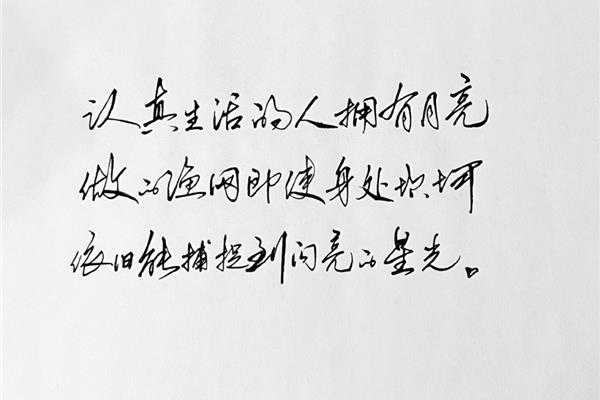 认真生活的人拥有月亮
做的渔网即使身处坎坷
依旧能捕捉到闪亮的星光。